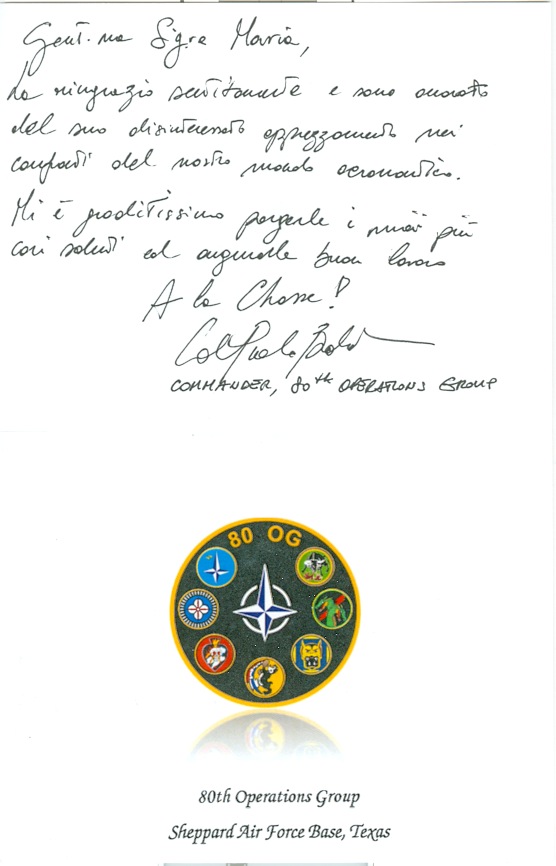 Gent.ma Sig.ra Maria,
La ringrazio sentitamente e sono onorato
del suo disinteressato apprezzamento nei
confronti del nostro mondo aeronautico.
Mi è graditissimo porgerle i miei più
cari saluti ed augurarle buon lavoro
A la Chasse!
Col Paolo
COMMANDER, 80th OPERATIONS GROUP
80 OG
80th Operations Group
Sheppard Air Force Base, Texas